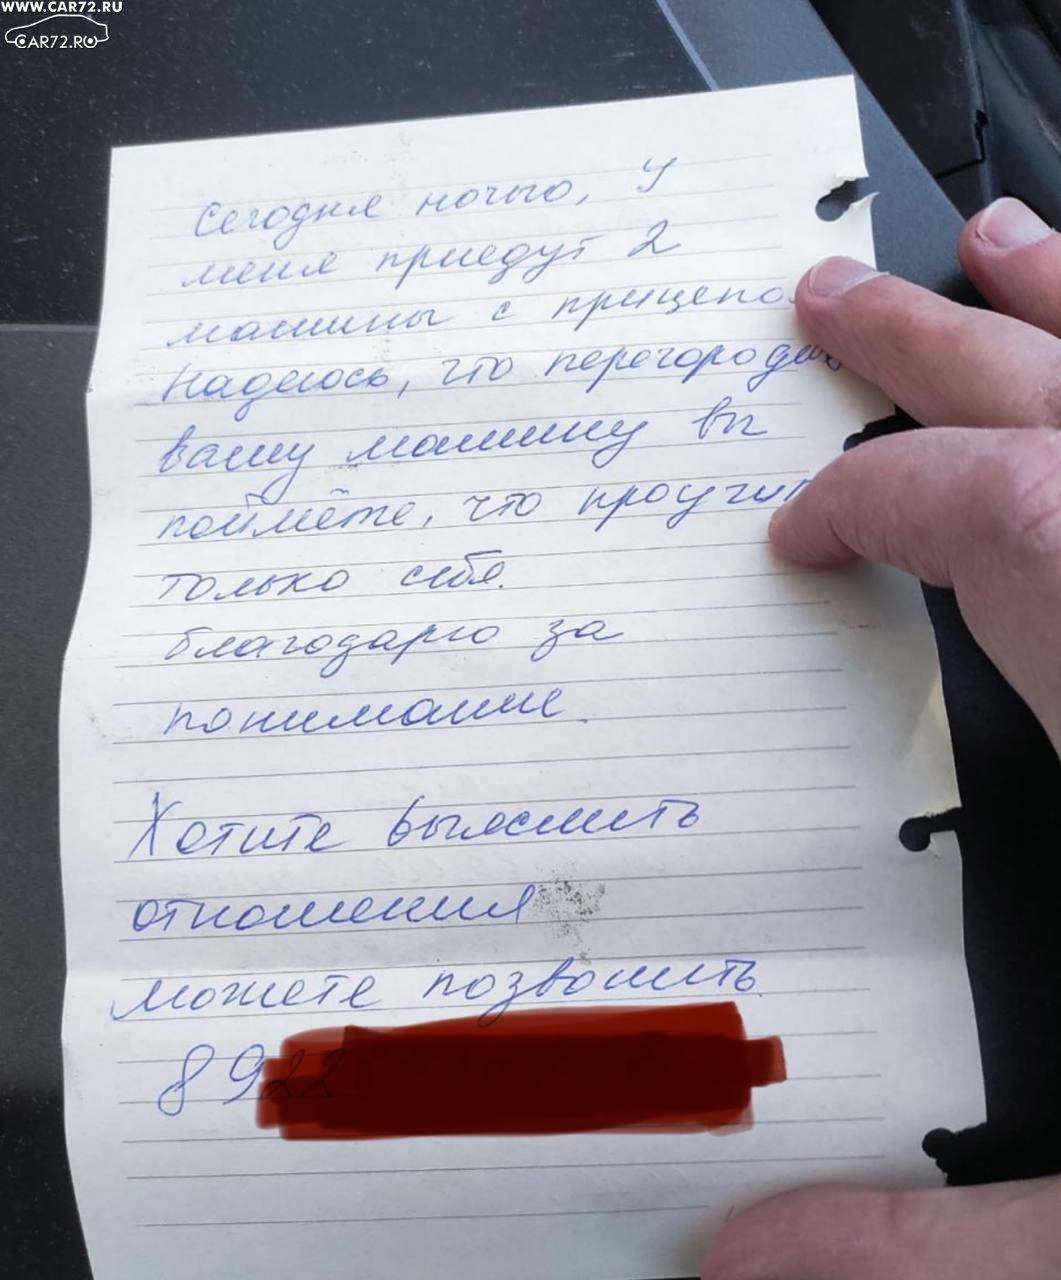 WWW.CAR72.RU
CAR72.RU
Сегодня ночью, у
меня приедут 2
машины с прицепо
Надеюсь, что перегородив
вашу машину вы
поймёте, что проучит
только себя.
благодарю за
понимание.
Хотите выяснить
отношения
можете позвонить
8922